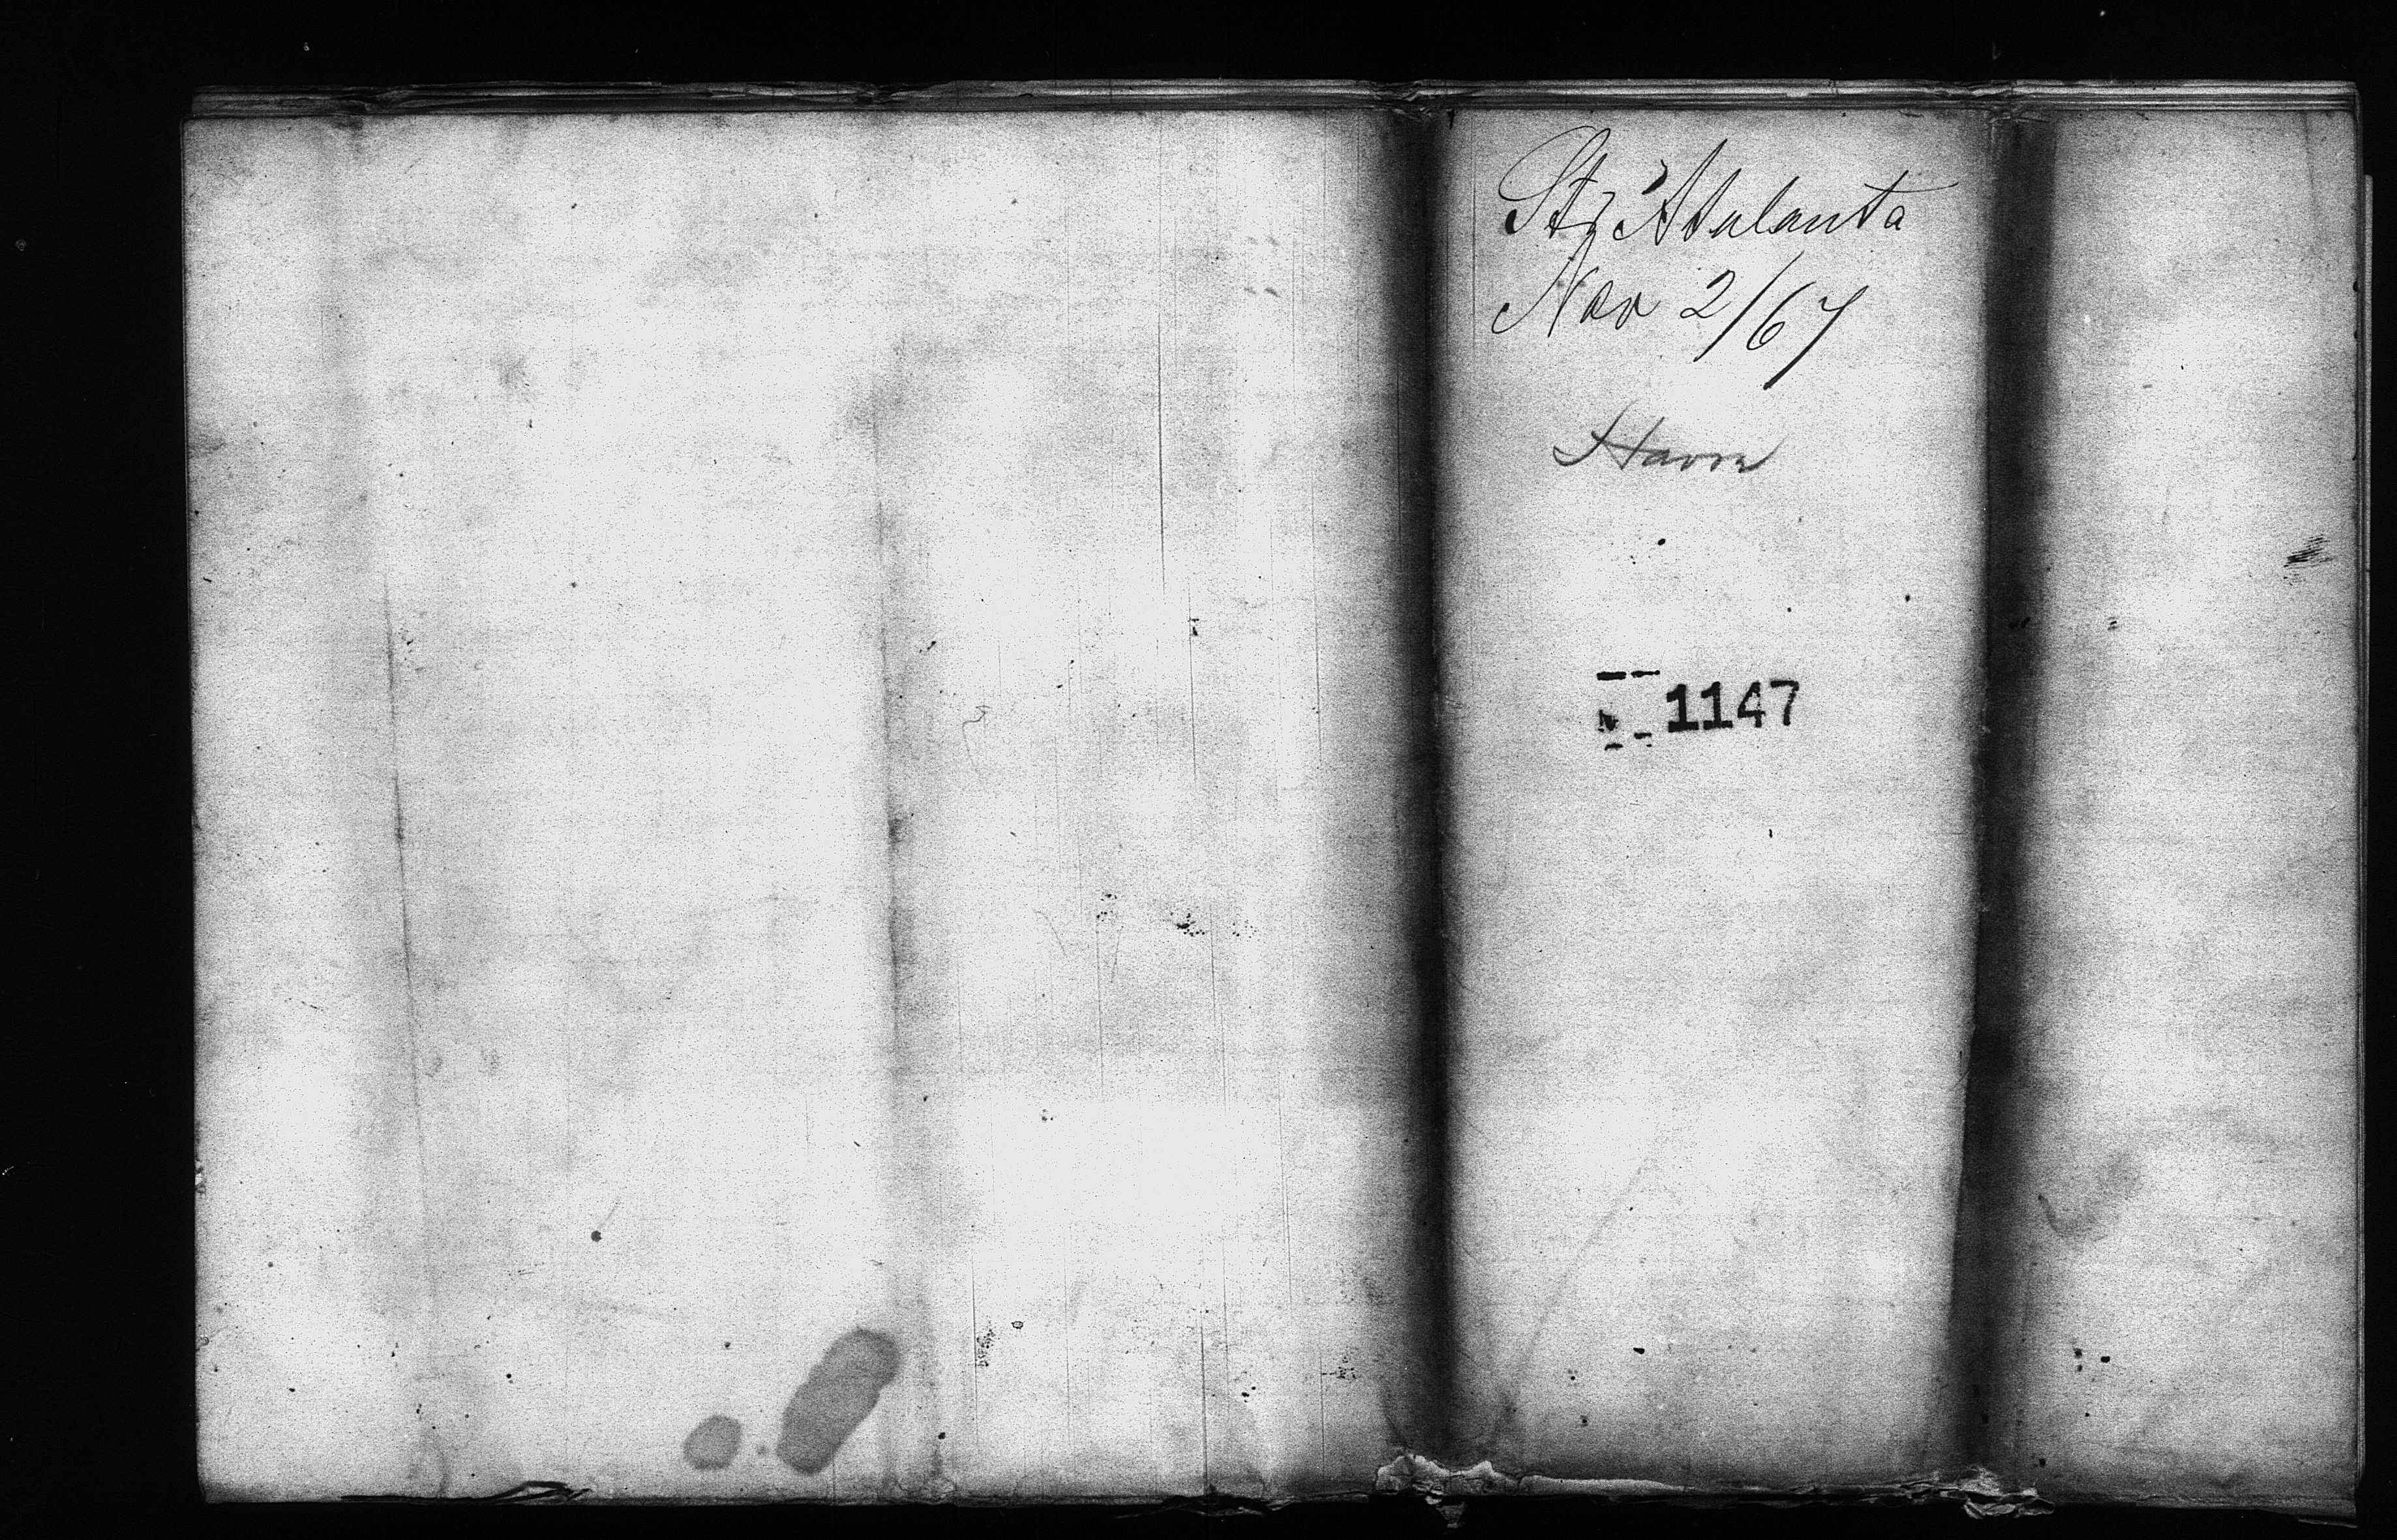 Str Atalanta
Nov 2/67
Havre
1147